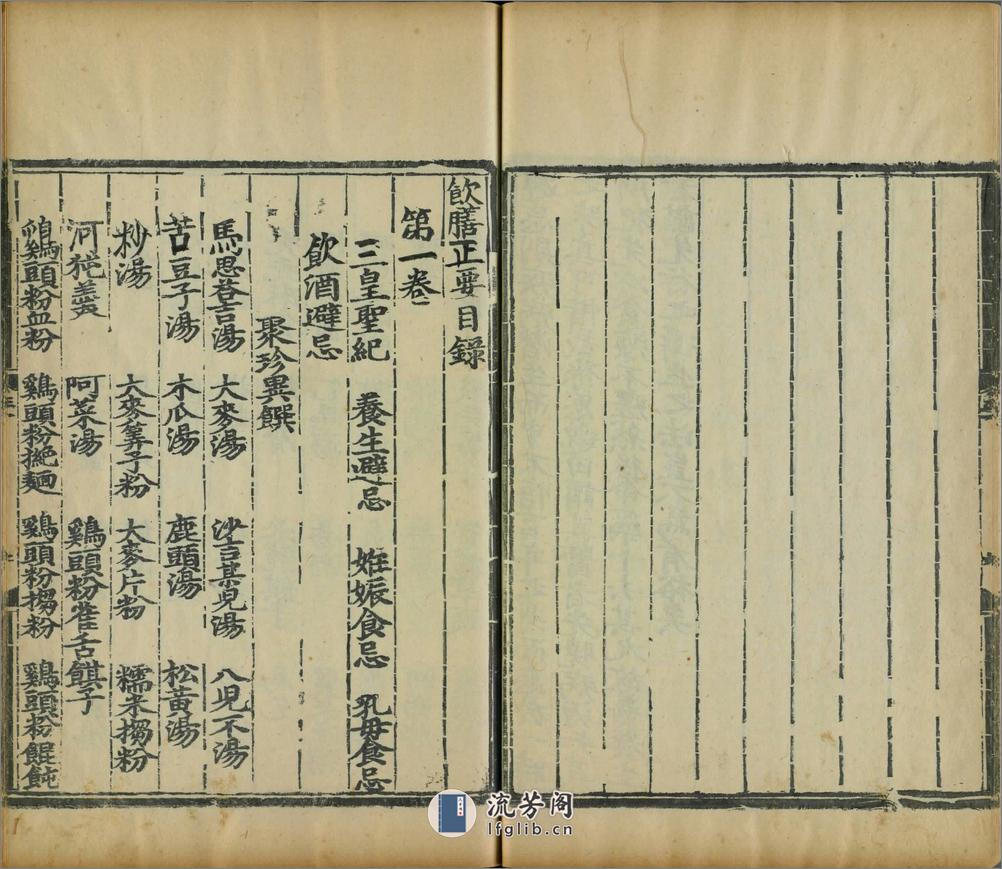 飲膳正要目録
第一卷
三皇聖紀 養生避忌 姙娠食忌 乳母食忌
飲酒避忌
聚珍異饌
馬思荅吉湯 大麥湯 沙吉某兒湯 八兒不湯
苦豆子湯 木瓜湯 鹿頭湯 松黃湯
炒湯 大麥筭子粉 大麥片粉 糯米搊粉
河㹠羹 阿菜湯 鷄頭粉雀舌䭆子
鷄頭粉血粉 鷄頭粉撧麵 鷄頭粉搊粉 鷄頭粉餛飩
流芳阁
lfglib.cn